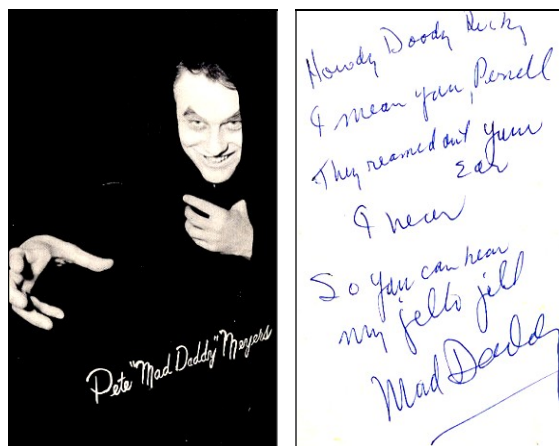 Pete "Mad Daddy" Meyers
Howdy Doody Ricky
I mean you,
They reamed out your
Ear
I hear
So you can hear
my jello jell
Mad Daddy